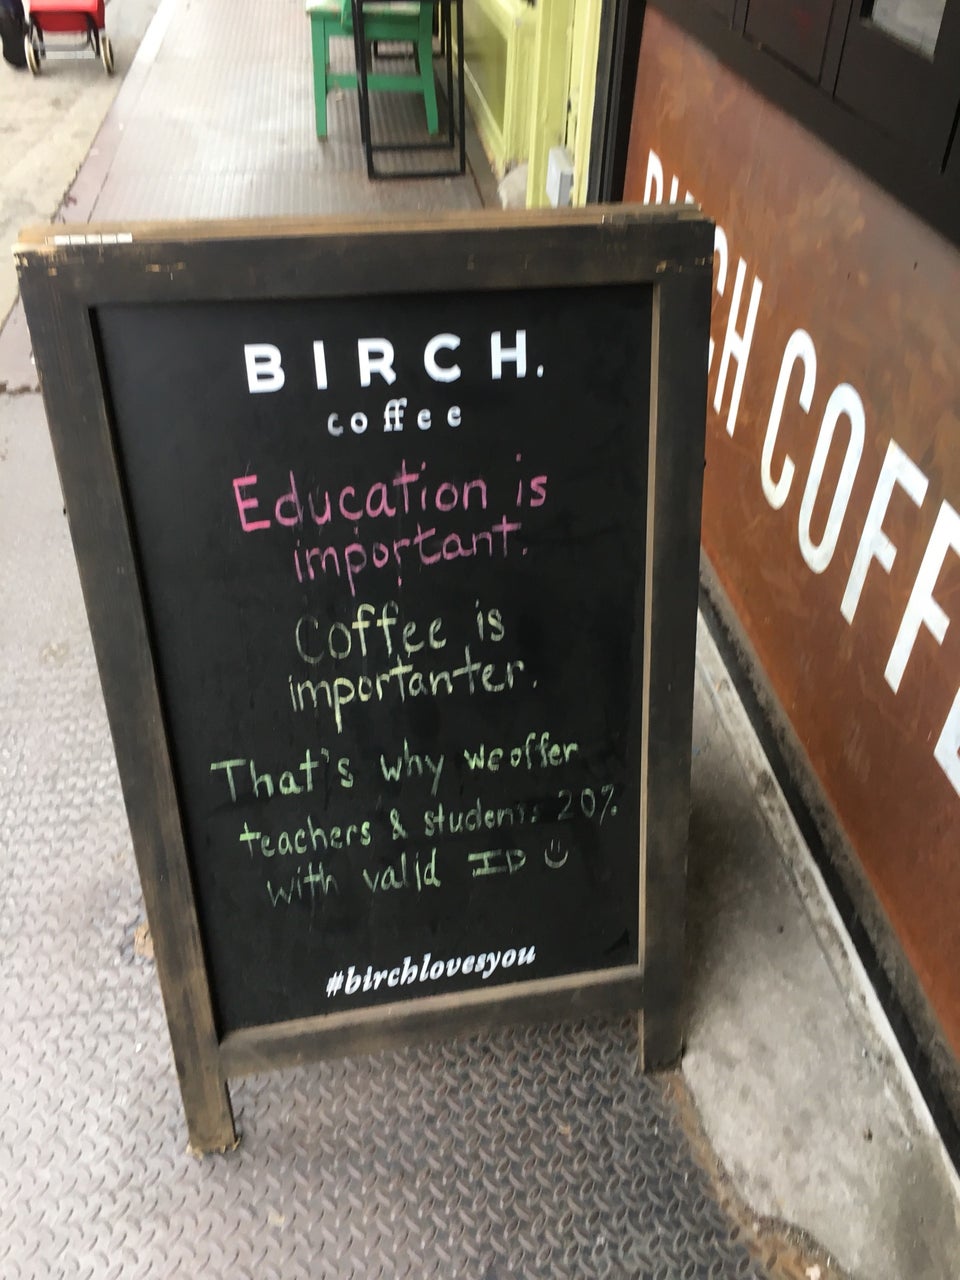 BIRCH.
coffee
Education is
important.
Coffee is
importanter.
That's why we offer
teachers & students 20%
with valid ID
#birchlovesyou
BIRCH COFFE